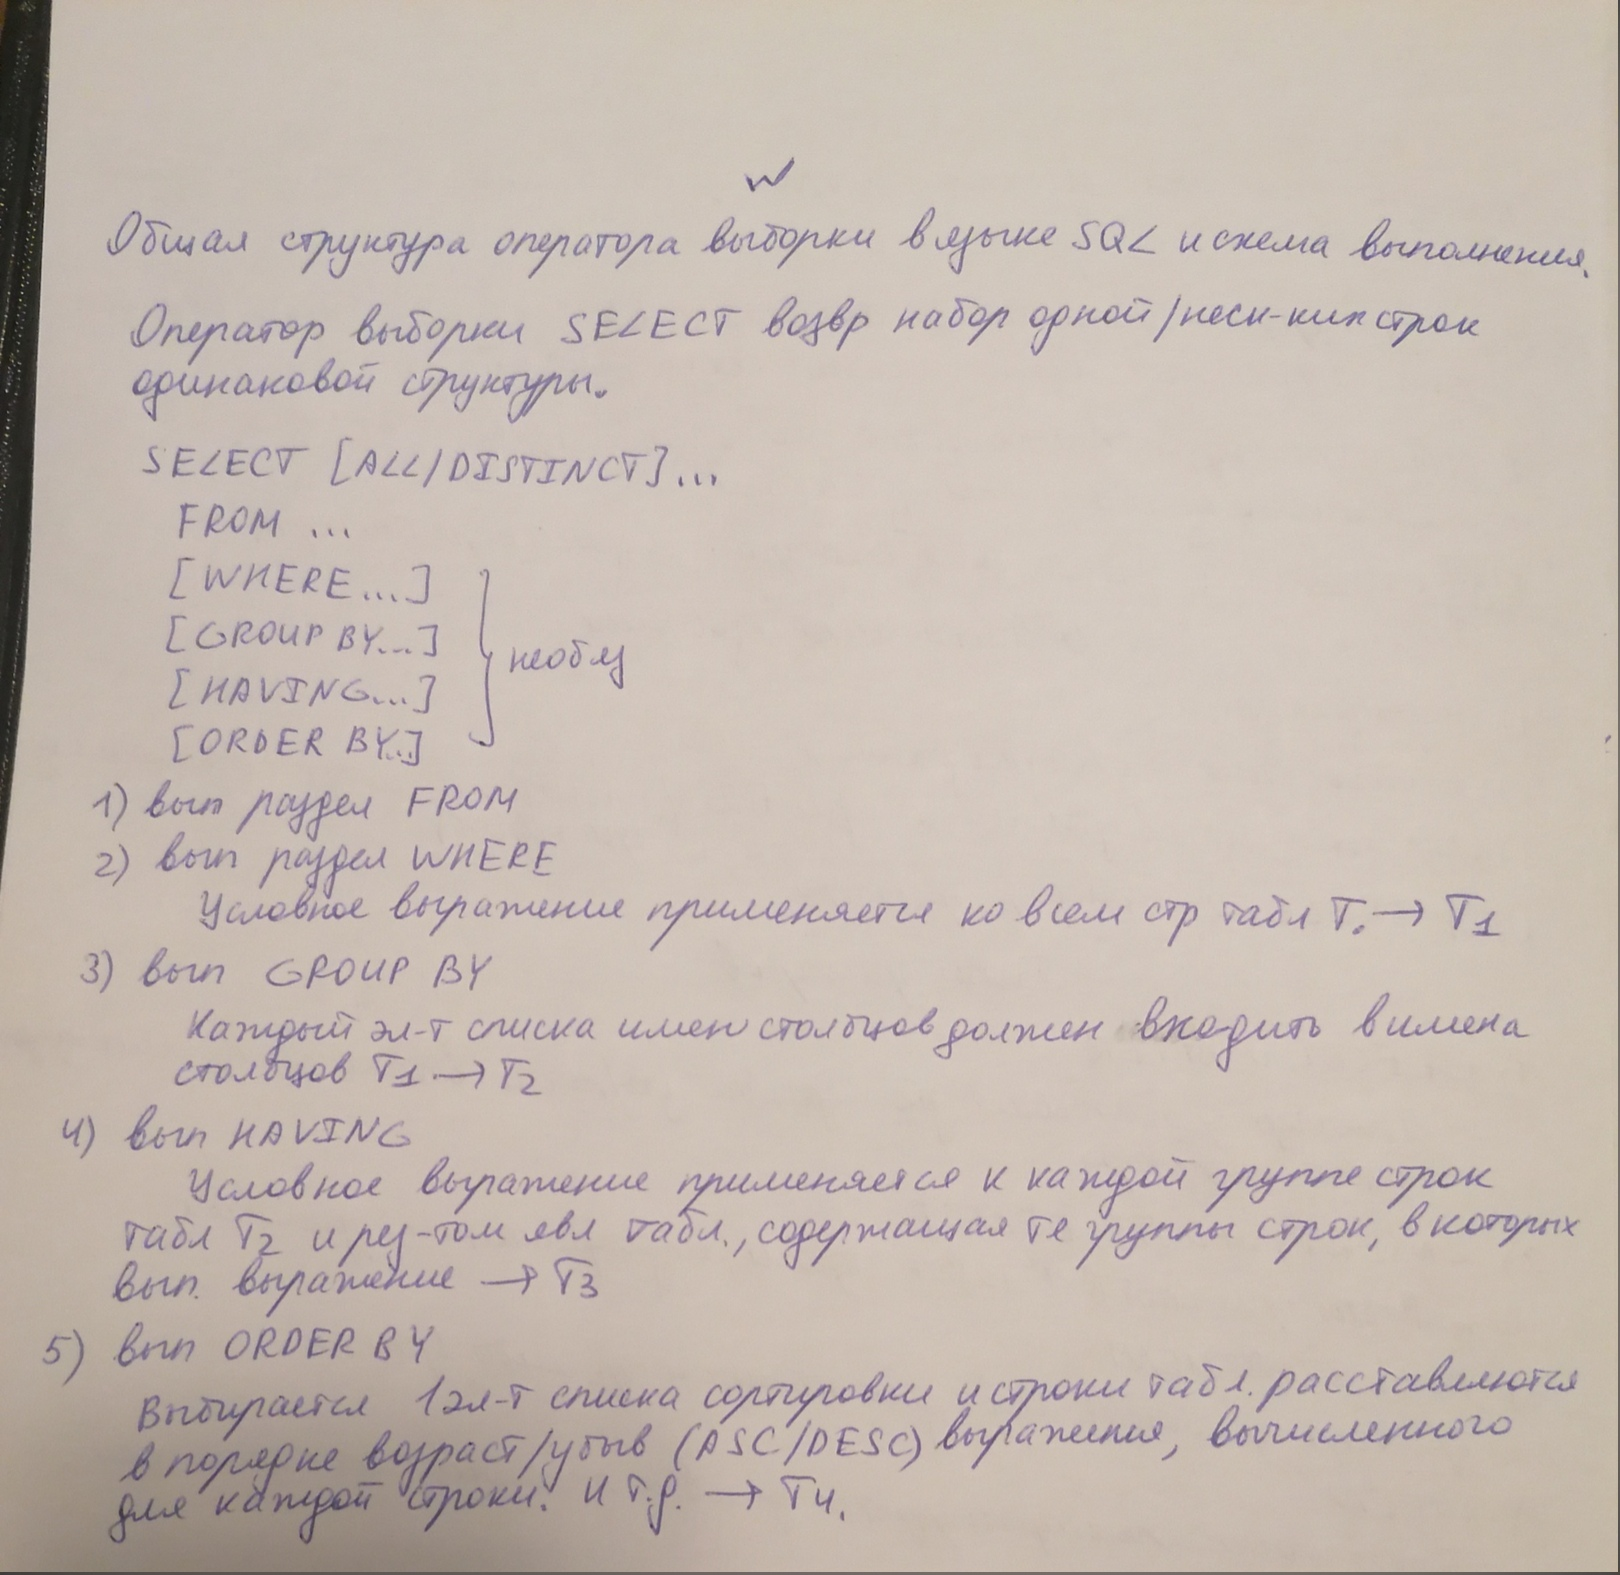 Общая структура оператора выборки в языке SQL и схема выполнения.
Оператор выборки SELECT возвр набор одной/неск-ких строк
одинаковой структуры.
SELECT [ALL/DISTINCT]...
FROM ...
[WHERE...]
[GROUP BY...]
необяз
[HAVING...]
[ORDER BY..]
1) вып раздел FROM
2) вып раздел WHERE
Условное выражение применяется ко всем стр табл T. → T1
3) вып GROUP BY
Каждый эл-т списка имен столбцов должен входить в имена
столбцов T1 → T2
4) вып HAVING
Условное выражение применяется к каждой группе строк
табл T2 и рез-том явл табл., содержащая те группы строк, в которых
вып. выражение → T3
5) вып ORDER BY
Выбирается 1 эл-т списка сортировки и строки табл. расставляются
в порядке возраст/убыв (ASC/DESC) выражения, вычисленного
для каждой строки. и т.д. → T4.